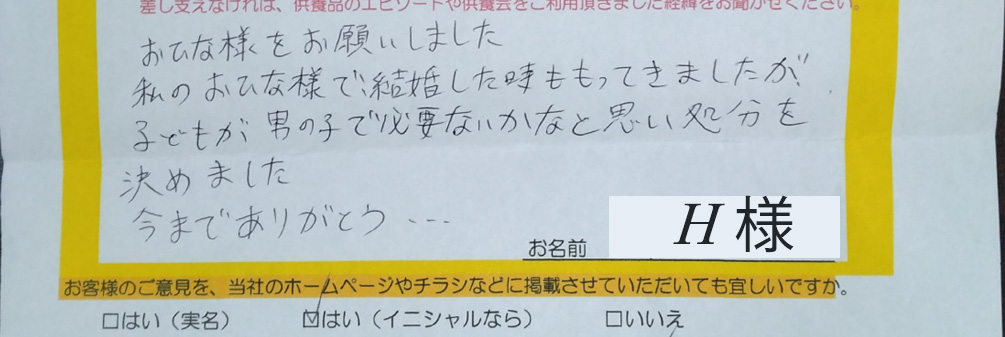 差し支えなければ、供養品のエピソードや供養会をご利用頂きました経緯をお聞かせください。
おひな様をお願いしました
私のおひな様で、結婚した時ももってきましたが
子どもが男の子で必要ないかなと思い処分を
決めました
今までありがとう…
お名前 H 様
お客様のご意見を、当社のホームページやチラシなどに掲載させていただいても宜しいですか。
☐はい（実名） ☑はい（イニシャルなら） ☐いいえ